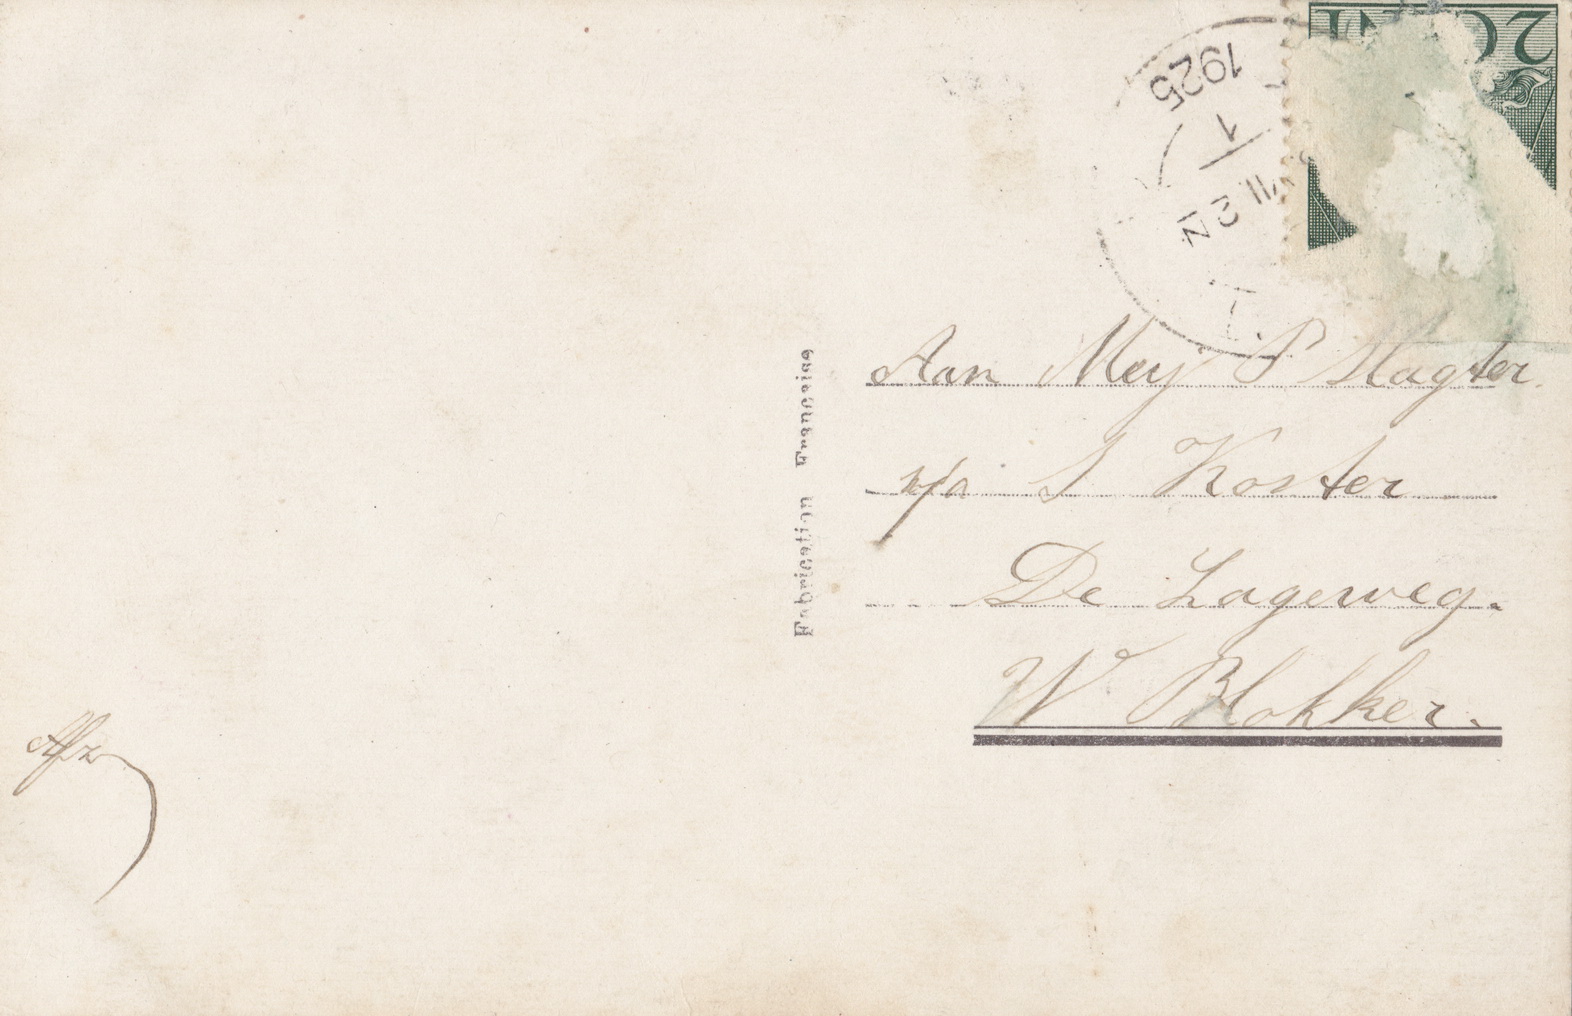 2 CENT
1925
1
VII. 2 N
Aan Mej P Slagter.
p/a J Koster
De Lageweg.
W Blokker.
Fabrication Française
Afz